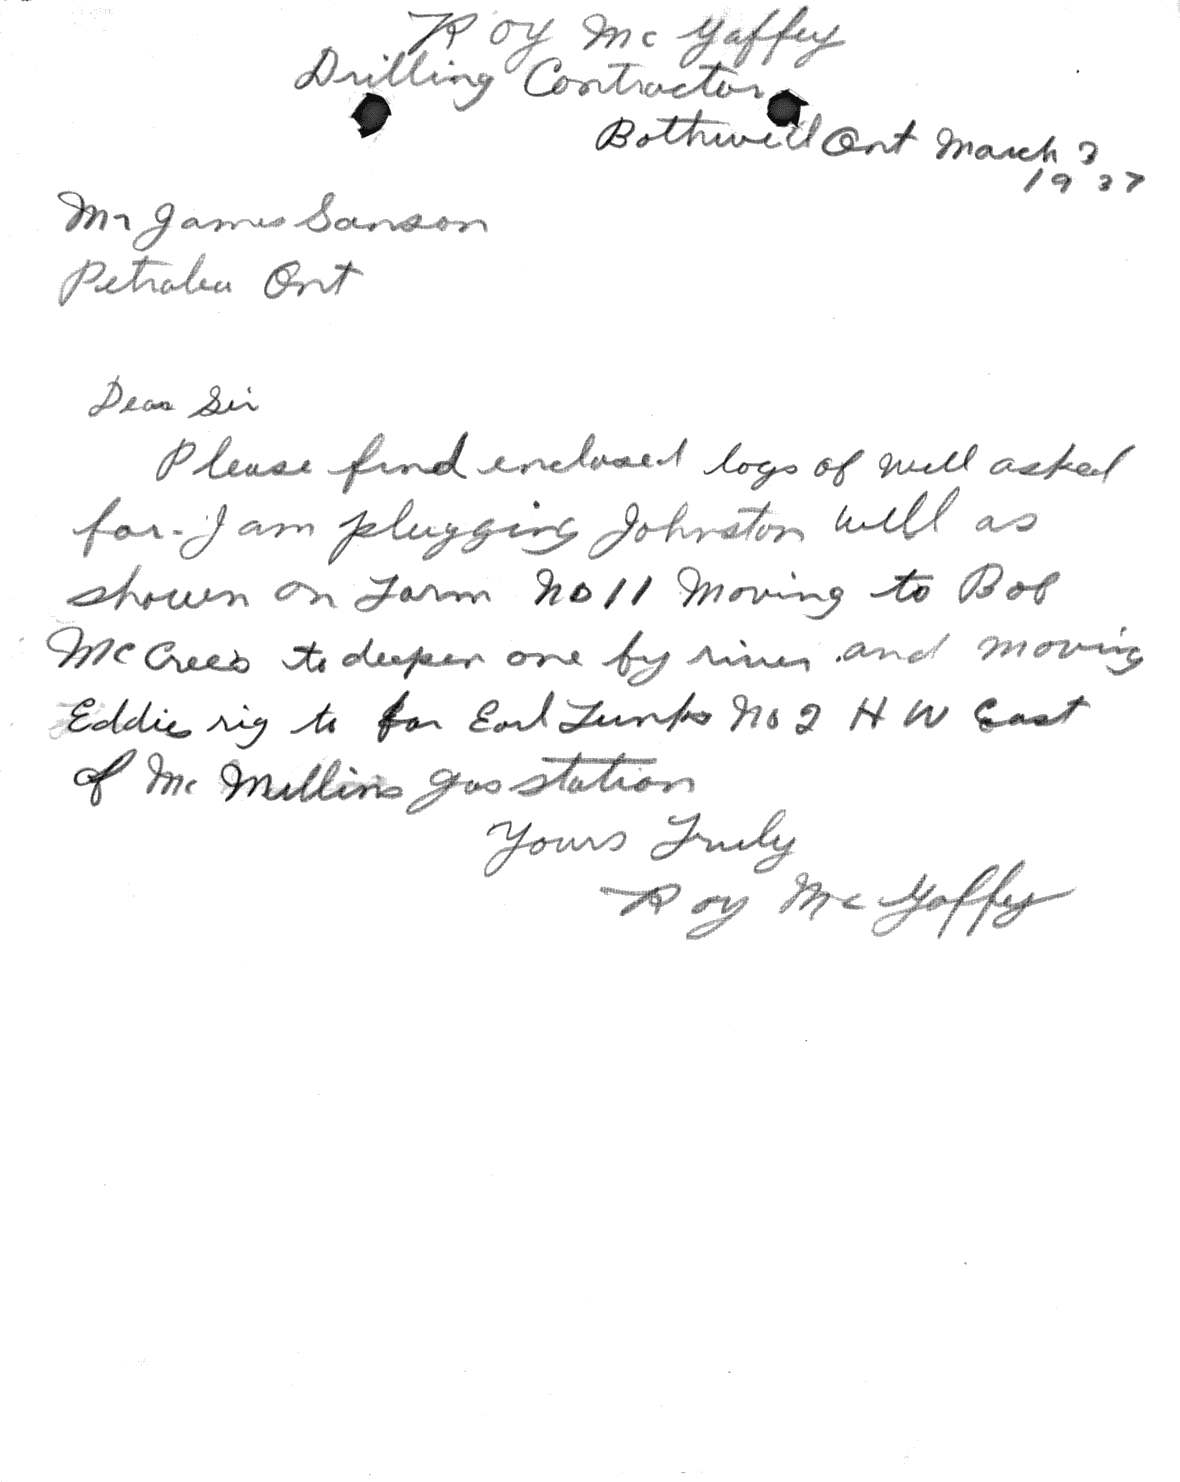 Roy McGaffey
Drilling Contractor
Bothwell Ont March 3
1937
Mr James Sanson
Petrolea Ont
Dear Sir
Please find enclosed logs of well asked
for. I am plugging Johnston well as
shown on Farm No 11 Moving to Bob
McCrees to deepen one by river and moving
Eddies rig to for Earl No 2 H W East
of Mc Mullins gas station
Yours Truly
Roy McGaffey